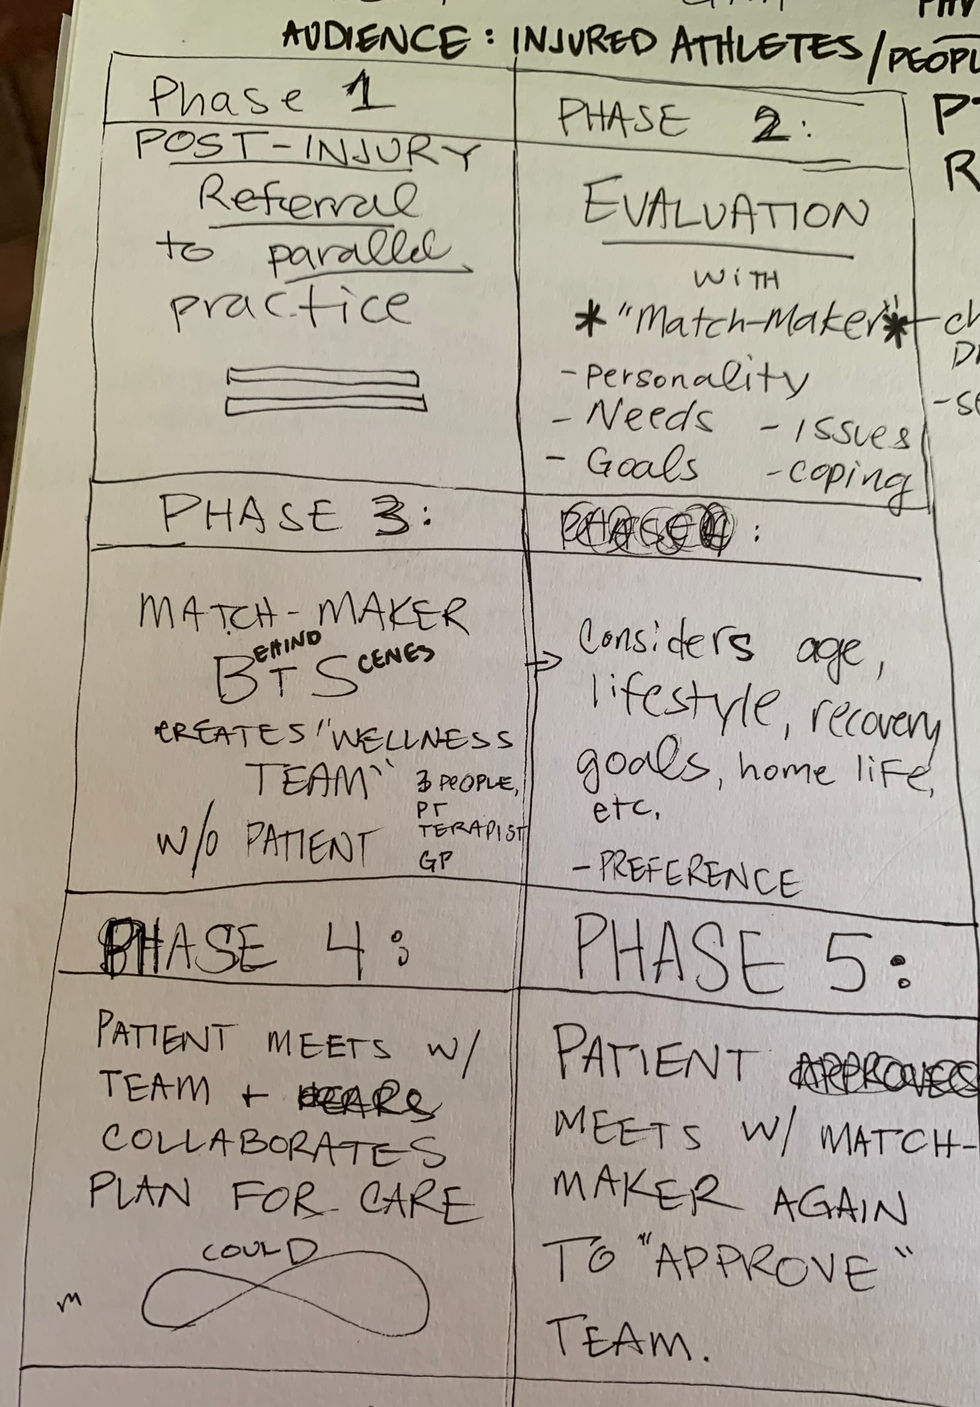 AUDIENCE: INJURED ATHLETES/PEOPL
Phase 1
POST-INJURY
Referral
to parallel
practice
PHASE 2:
EVALUATION
WITH
* "Match-Maker" *
- Personality
- Needs
- Issues
- Goals
- coping
PHASE 3:
MATCH-MAKER
BEHIND T SCENES
CREATES "WELLNESS
TEAM"
3 PEOPLE,
PT
TERAPIST
GP
W/O PATIENT
PHASE 4 :
→ Considers age,
lifestyle, recovery
goals, home life,
etc.
- PREFERENCE
PHASE 4:
PATIENT MEETS W/
TEAM + HEARS
COLLABORATES
PLAN FOR CARE
COULD
m
PHASE 5:
PATIENT APPROVES
MEETS W/ MATCH-
MAKER AGAIN
TO "APPROVE"
TEAM.